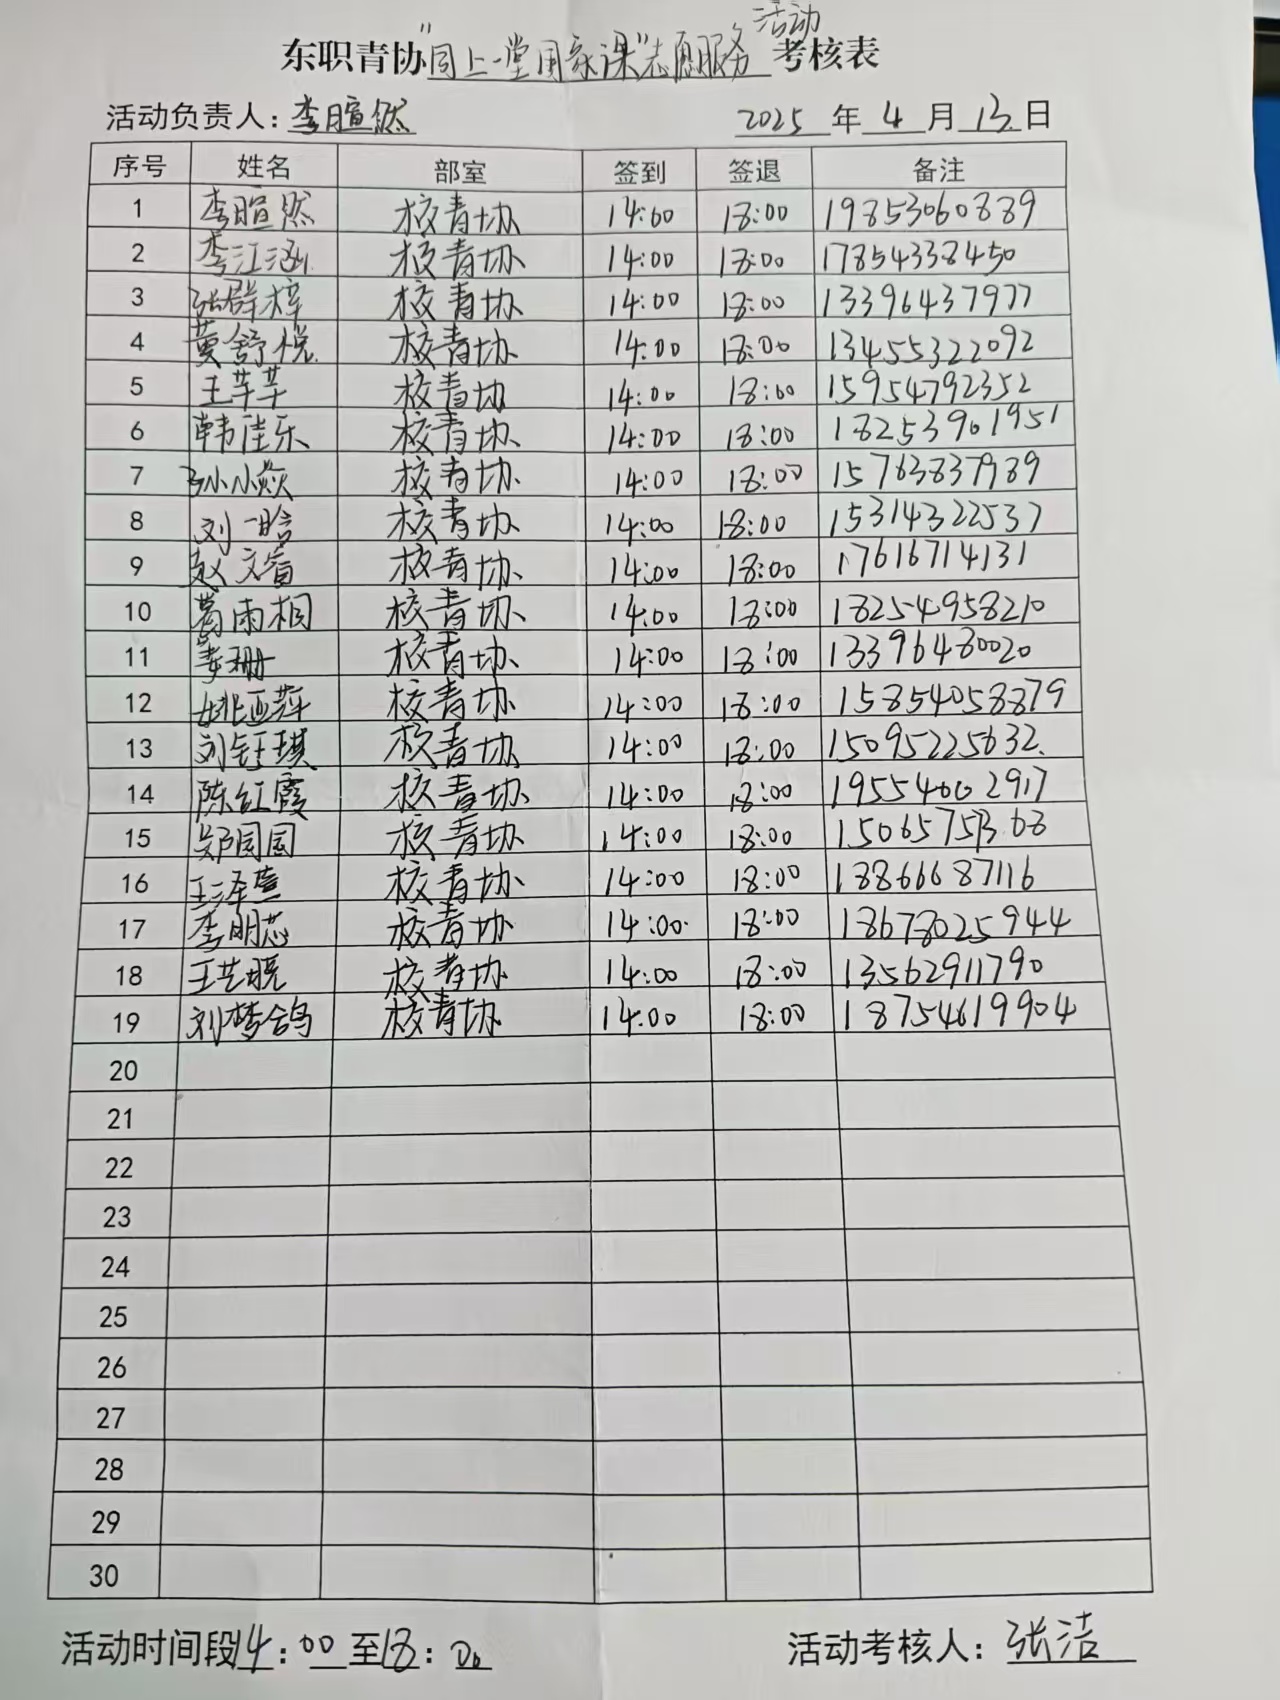 活动
东职青协"同上一堂国家课"志愿服务考核表
活动负责人：李暄然 2025 年 4 月 13 日
序号 姓名 部室 签到 签退 备注
1 李暄然 校青协 14:00 18:00 19853060889
2 李江涵 校青协 14:00 18:00 17854338450
3 张群梓 校青协 14:00 18:00 13396437977
4 黄舒悦 校青协 14:00 18:00 13455322092
5 王芊芊 校青协 14:00 18:00 15954792352
6 韩佳乐 校青协 14:00 18:00 18253901951
7 孙小焱 校青协 14:00 18:00 15763837989
8 刘一晗 校青协 14:00 18:00 15314322537
9 赵文萱 校青协 14:00 18:00 17616714131
10 葛雨桐 校青协 14:00 18:00 18254958210
11 姜珊 校青协 14:00 18:00 13396480020
12 姚亚萍 校青协 14:00 18:00 15854058879
13 刘钰琪 校青协 14:00 18:00 15095225632
14 陈红霞 校青协 14:00 18:00 19554002917
15 郑园园 校青协 14:00 18:00
16 王泽萱 校青协 14:00 18:00 18866687116
17 李明蕊 校青协 14:00 18:00 18678025944
18 王艺晓 校青协 14:00 18:00 13562911790
19 刘梦鸽 校青协 14:00 18:00 18754619904
20
21
22
23
24
25
26
27
28
29
30
活动时间段14：00至18：00 活动考核人：张洁